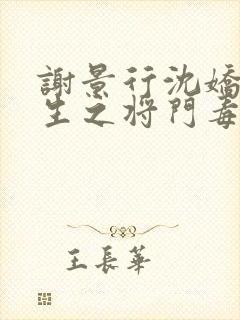 謝景行沈嬌
生之将門毒
王長華